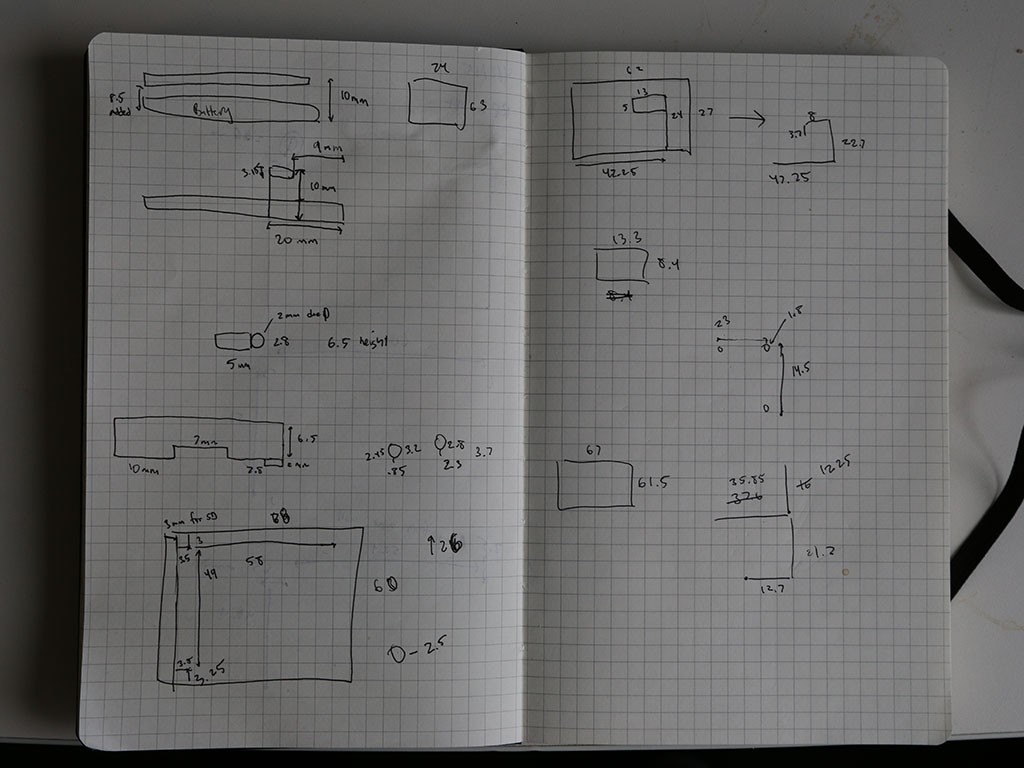 8.5
added
Battery
10mm
24
63
9mm
10mm
20mm
2mm deep
28
6.5 height
5mm
7mm
6.5
10mm
2.8
2mm
2.45
3.2
.85
2.8
2.3
3.7
3mm for SD
88
3
3.5
58
49
3.5
2.25
60
↑26
O - 2.5
62
13
5
24
27
42.25
→
8
3.7
22.7
42.25
13.3
8.4
8.4
23
1.8
14.5
67
61.5
35.85
37.6
16
12.25
21.2
12.7